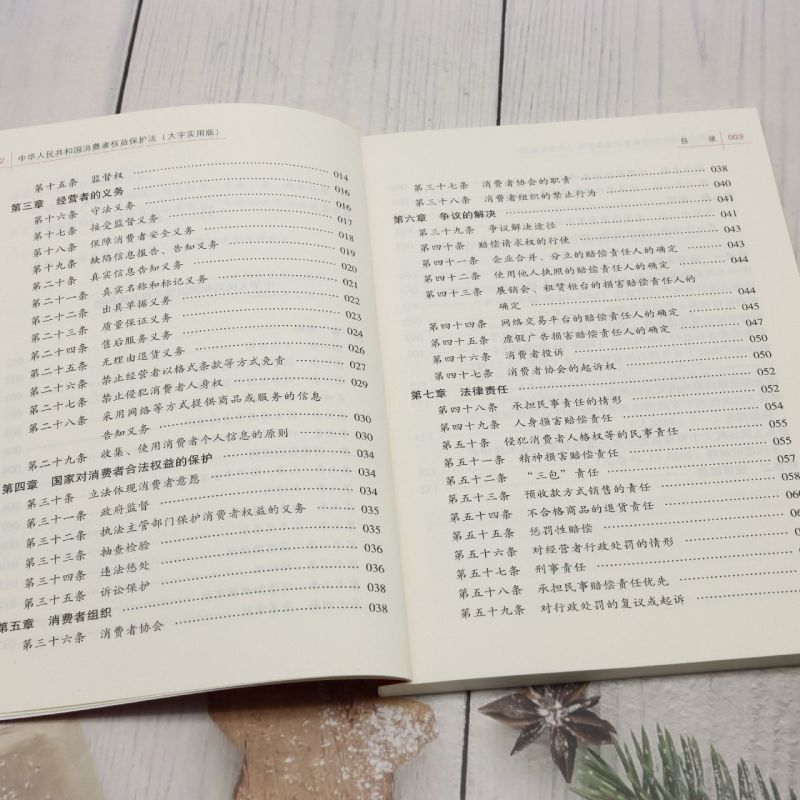 2 中华人民共和国消费者权益保护法(大字实用版)
第十五条 监督权 014
第三章 经营者的义务 016
第十六条 守法义务 016
第十七条 接受监督义务 017
第十八条 保障消费者安全义务 018
第十九条 缺陷信息报告、告知义务 019
第二十条 真实信息告知义务 020
第二十一条 真实名称和标记义务 021
第二十二条 出具单据义务 022
第二十三条 质量保证义务 023
第二十四条 售后服务义务 024
第二十五条 无理由退货义务 026
第二十六条 禁止经营者以格式条款等方式免责 027
第二十七条 禁止侵犯消费者人身权 029
第二十八条 采用网络等方式提供商品或服务的信息
告知义务 030
第二十九条 收集、使用消费者个人信息的原则 030
第四章 国家对消费者合法权益的保护 034
第三十条 立法体现消费者意愿 034
第三十一条 政府监督 034
第三十二条 执法主管部门保护消费者权益的义务 035
第三十三条 抽查检验 035
第三十四条 违法惩处 036
第三十五条 诉讼保护 036
第五章 消费者组织 038
第三十六条 消费者协会 038
目 录 003
第三十七条 消费者协会的职责 038
第三十八条 消费者组织的禁止行为 040
第六章 争议的解决 041
第三十九条 争议解决途径 041
第四十条 赔偿请求权的行使 043
第四十一条 企业合并、分立的赔偿责任人的确定 043
第四十二条 使用他人执照的赔偿责任人的确定 044
第四十三条 展销会、租赁柜台的损害赔偿责任人的
确定 044
第四十四条 网络交易平台的赔偿责任人的确定 045
第四十五条 虚假广告损害赔偿责任人的确定 047
第四十六条 消费者投诉 050
第四十七条 消费者协会的起诉权 050
第七章 法律责任 052
第四十八条 承担民事责任的情形 052
第四十九条 人身损害赔偿责任 054
第五十条 侵犯消费者人格权等的民事责任 055
第五十一条 精神损害赔偿责任 055
第五十二条 “三包”责任 057
第五十三条 预收款方式销售的责任 058
第五十四条 不合格商品的退货责任
第五十五条 惩罚性赔偿
第五十六条 对经营者行政处罚的情形
第五十七条 刑事责任
第五十八条 承担民事赔偿责任优先
第五十九条 对行政处罚的复议或起诉